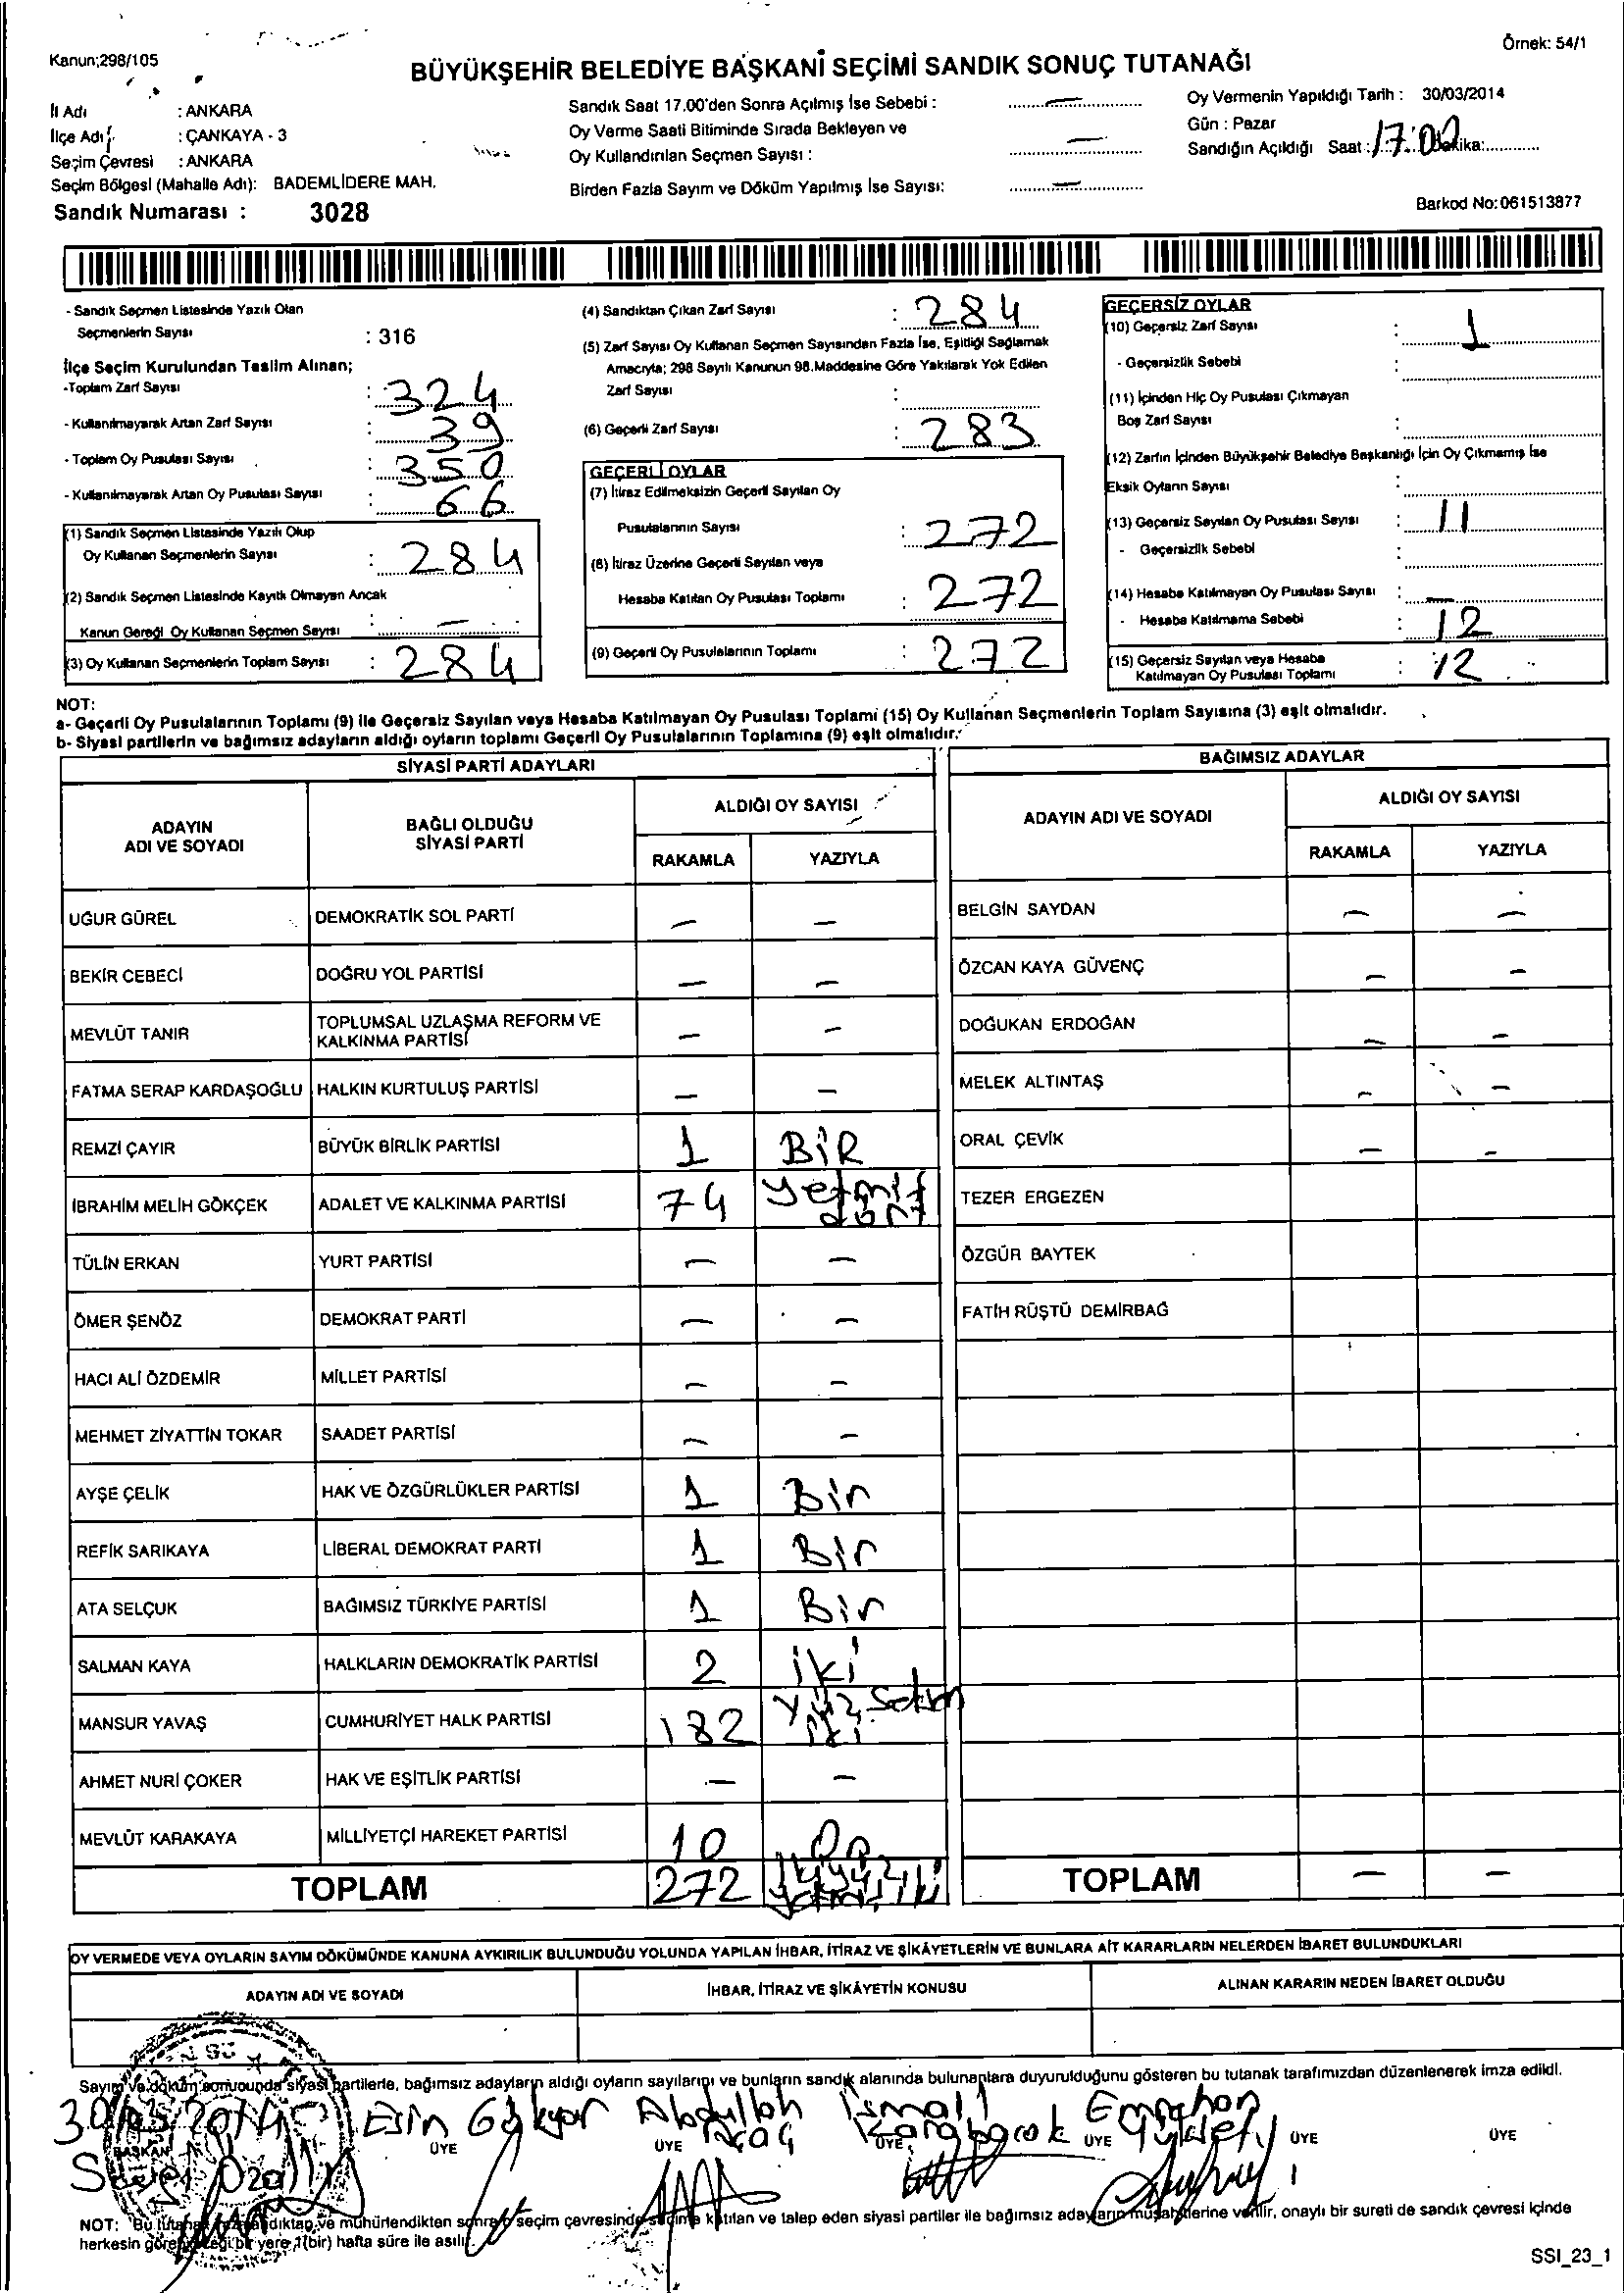 Kanun;298/105
Örnek: 54/1
BÜYÜKŞEHİR BELEDİYE BAŞKANI SEÇİMİ SANDIK SONUÇ TUTANAĞI
İl Adı : ANKARA
İlçe Adı : ÇANKAYA - 3
Seçim Çevresi : ANKARA
Seçim Bölgesi (Mahalle Adı): BADEMLİDERE MAH.
Sandık Numarası : 3028
Sandık Saat 17.00'den Sonra Açılmış İse Sebebi : —
Oy Verme Saati Bitiminde Sırada Bekleyen ve
Oy Kullandırılan Seçmen Sayısı : —
Birden Fazla Sayım ve Döküm Yapılmış İse Sayısı: —
Oy Vermenin Yapıldığı Tarih : 30/03/2014
Gün : Pazar
Sandığın Açıldığı Saat : 17:00
Barkod No:061513877
- Sandık Seçmen Listesinde Yazılı Olan
Seçmenlerin Sayısı : 316
İlçe Seçim Kurulundan Teslim Alınan;
-Toplam Zarf Sayısı : 324
- Kullanılmayarak Artan Zarf Sayısı : 39
- Toplam Oy Pusulası Sayısı : 350
- Kullanılmayarak Artan Oy Pusulası Sayısı : 66
(1) Sandık Seçmen Listesinde Yazılı Olup
Oy Kullanan Seçmenlerin Sayısı : 284
(2) Sandık Seçmen Listesinde Kayıtlı Olmayan Ancak
Kanun Gereği Oy Kullanan Seçmen Sayısı : —
(3) Oy Kullanan Seçmenlerin Toplam Sayısı : 284
(4) Sandıktan Çıkan Zarf Sayısı : 284
(5) Zarf Sayısı Oy Kullanan Seçmen Sayısından Fazla İse, Eşitliği Sağlamak
Amacıyla; 298 Sayılı Kanunun 98.Maddesine Göre Yakılarak Yok Edilen
Zarf Sayısı :
(6) Geçerli Zarf Sayısı : 283
GEÇERLİ OYLAR
(7) İtiraz Edilmeksizin Geçerli Sayılan Oy
Pusulalarının Sayısı : 272
(8) İtiraz Üzerine Geçerli Sayılan veya
Hesaba Katılan Oy Pusulası Toplamı : 272
(9) Geçerli Oy Pusulalarının Toplamı : 272
GEÇERSİZ OYLAR
(10) Geçersiz Zarf Sayısı : 1
- Geçersizlik Sebebi :
(11) İçinden Hiç Oy Pusulası Çıkmayan
Boş Zarf Sayısı :
(12) Zarfın İçinden Büyükşehir Belediye Başkanlığı İçin Oy Çıkmamış İse
Eksik Oyların Sayısı :
(13) Geçersiz Sayılan Oy Pusulası Sayısı : 11
- Geçersizlik Sebebi :
(14) Hesaba Katılmayan Oy Pusulası Sayısı : —
- Hesaba Katılmama Sebebi : 12
(15) Geçersiz Sayılan veya Hesaba
Katılmayan Oy Pusulası Toplamı : 12
NOT:
a- Geçerli Oy Pusulalarının Toplamı (9) ile Geçersiz Sayılan veya Hesaba Katılmayan Oy Pusulası Toplamı (15) Oy Kullanan Seçmenlerin Toplam Sayısına (3) eşit olmalıdır.
b- Siyasi partilerin ve bağımsız adayların aldığı oyların toplamı Geçerli Oy Pusulalarının Toplamına (9) eşit olmalıdır.
SİYASİ PARTİ ADAYLARI
ADAYIN
ADI VE SOYADI
BAĞLI OLDUĞU
SİYASİ PARTİ
ALDIĞI OY SAYISI
RAKAMLA YAZIYLA
UĞUR GÜREL DEMOKRATİK SOL PARTİ — —
BEKİR CEBECİ DOĞRU YOL PARTİSİ — —
MEVLÜT TANIR TOPLUMSAL UZLAŞMA REFORM VE
KALKINMA PARTİSİ — —
FATMA SERAP KARDAŞOĞLU HALKIN KURTULUŞ PARTİSİ — —
REMZİ ÇAYIR BÜYÜK BİRLİK PARTİSİ 1 BİR
İBRAHİM MELİH GÖKÇEK ADALET VE KALKINMA PARTİSİ 74 yetmiş
dört
TÜLİN ERKAN YURT PARTİSİ — —
ÖMER ŞENÖZ DEMOKRAT PARTİ — —
HACI ALİ ÖZDEMİR MİLLET PARTİSİ — —
MEHMET ZİYATTİN TOKAR SAADET PARTİSİ — —
AYŞE ÇELİK HAK VE ÖZGÜRLÜKLER PARTİSİ 1 Bir
REFİK SARIKAYA LİBERAL DEMOKRAT PARTİ 1 Bir
ATA SELÇUK BAĞIMSIZ TÜRKİYE PARTİSİ 1 Bir
SALMAN KAYA HALKLARIN DEMOKRATİK PARTİSİ 2 iki
MANSUR YAVAŞ CUMHURİYET HALK PARTİSİ 182 Yüz seksen
iki
AHMET NURİ ÇOKER HAK VE EŞİTLİK PARTİSİ — —
MEVLÜT KARAKAYA MİLLİYETÇİ HAREKET PARTİSİ 10 On
TOPLAM 272
BAĞIMSIZ ADAYLAR
ADAYIN ADI VE SOYADI
ALDIĞI OY SAYISI
RAKAMLA YAZIYLA
BELGİN SAYDAN — —
ÖZCAN KAYA GÜVENÇ — —
DOĞUKAN ERDOĞAN — —
MELEK ALTINTAŞ — —
ORAL ÇEVİK — —
TEZER ERGEZEN
ÖZGÜR BAYTEK
FATİH RÜŞTÜ DEMİRBAĞ
TOPLAM — —
OY VERMEDE VEYA OYLARIN SAYIM DÖKÜMÜNDE KANUNA AYKIRILIK BULUNDUĞU YOLUNDA YAPILAN İHBAR, İTİRAZ VE ŞİKÂYETLERİN VE BUNLARA AİT KARARLARIN NELERDEN İBARET BULUNDUKLARI
ADAYIN ADI VE SOYADI İHBAR, İTİRAZ VE ŞİKÂYETİN KONUSU ALINAN KARARIN NEDEN İBARET OLDUĞU
Sayım ve döküm sonucunda siyasi partilerle, bağımsız adayların aldığı oyların sayılarını ve bunların sandık alanında bulunanlara duyurulduğunu gösteren bu tutanak tarafımızdan düzenlenerek imza edildi.
30/03/2014 Esin Gökyar Abdullah İsmail Emrahan
BAŞKAN ÜYE ÜYE ÜYE ÜYE ÜYE ÜYE
NOT: Bu tutanak ve mühürlendikten sonra seçim çevresinde seçime katılan ve talep eden siyasi partiler ile bağımsız adayların müşahitlerine verilir, onaylı bir sureti de sandık çevresi içinde
herkesin görebileceği bir yere 1(bir) hafta süre ile asılır.
SSI_23_1